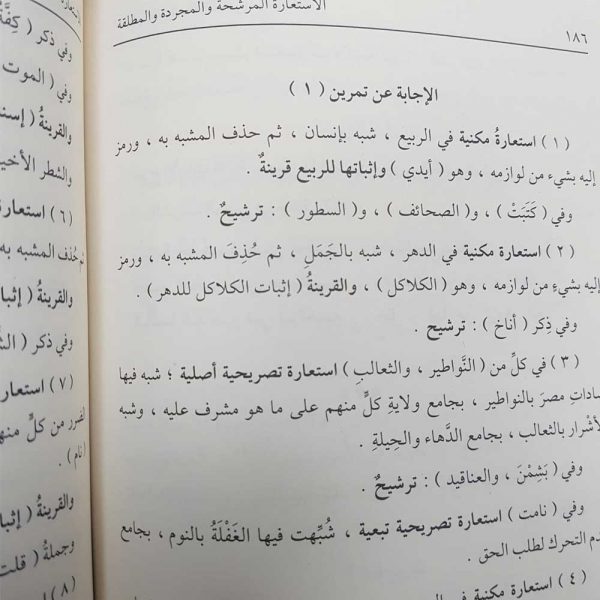 الاستعارة المرشحة والمجردة والمطلقة
١٨٦
الإجابة عن تمرين ( ١ )
( ١ ) استعارةُ مكنية في الربيع ، شبه بإنسان ، ثم حذف المشبه به ، ورمز
إليه بشيء من لوازمه ، وهو ( أيدي ) وإثباتها للربيع قرينةٌ .
وفي ( كَتَبَتْ ) ، و( الصحائف ) ، و( السطور ) : ترشيحٌ .
( ٢ ) استعارة مكنية في الدهر ، شبه بالجَمَلِ ، ثم حُذِفَ المشبه به ، ورمز
إليه بشيءٍ من لوازمه ، وهو ( الكلاكل ) ، والقرينةُ ( إثبات الكلاكل للدهر ) .
وفي ذِكر ( أناخ ) : ترشيح .
( ٣ ) في كلٍّ من ( النَّواطير ، والثعالبِ ) استعارة تصريحية أصلية ؛ شبه فيها
ساداتِ مصرَ بالنواطير ، بجامع ولايةِ كلٍّ منهم على ما هو مشرف عليه ، وشبه
الأشْرار بالثعالب ، بجامع الدَّهاء والحِيلةِ .
وفي ( بَشِمْنَ ، والعناقيد ) : ترشيحٌ .
وفي ( نامت ) استعارة تصريحية تبعية ، شُبِّهت فيها الغَفْلَةُ بالنوم ، بجامع
التحرك لطلب الحق .
( ٤ ) استعارة مكنية في
وفي ذكر ( كِفَّةُ
وفي ( الموت
والقرينةُ ( إسنـ
والشطر الأخيـ
( ٦ ) استعارة
ثم حُذف المشبه به
والقرينةُ ( إثبا
وفي ذكر (
( ٧ ) استعار
من كلٍّ منهـ
( نام ) .
والقرينةُ ( إثبا
وجملةُ ( قلت
( ٨ )